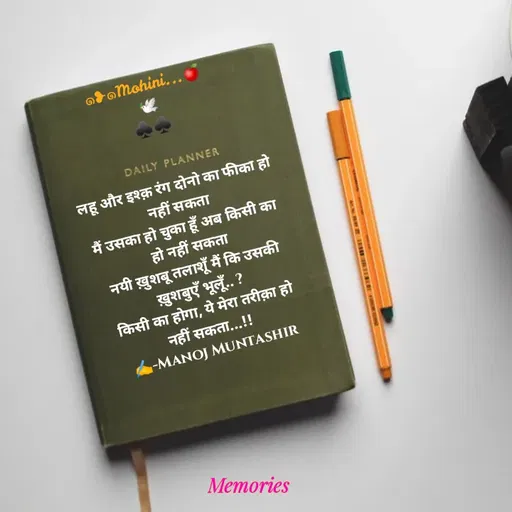 ๑❥๑Mohini...🍎
🕊️
♠️♠️
DAILY PLANNER
लहू और इश्क़ रंग दोनो का फीका हो
नहीं सकता
मैं उसका हो चुका हूँ अब किसी का
हो नहीं सकता
नयी ख़ुशबू तलाशूँ मैं कि उसकी
ख़ुशबुएँ भूलूँ..?
किसी का होगा, ये मेरा तरीक़ा हो
नहीं सकता...!!
✍️-MANOJ MUNTASHIR
Memories